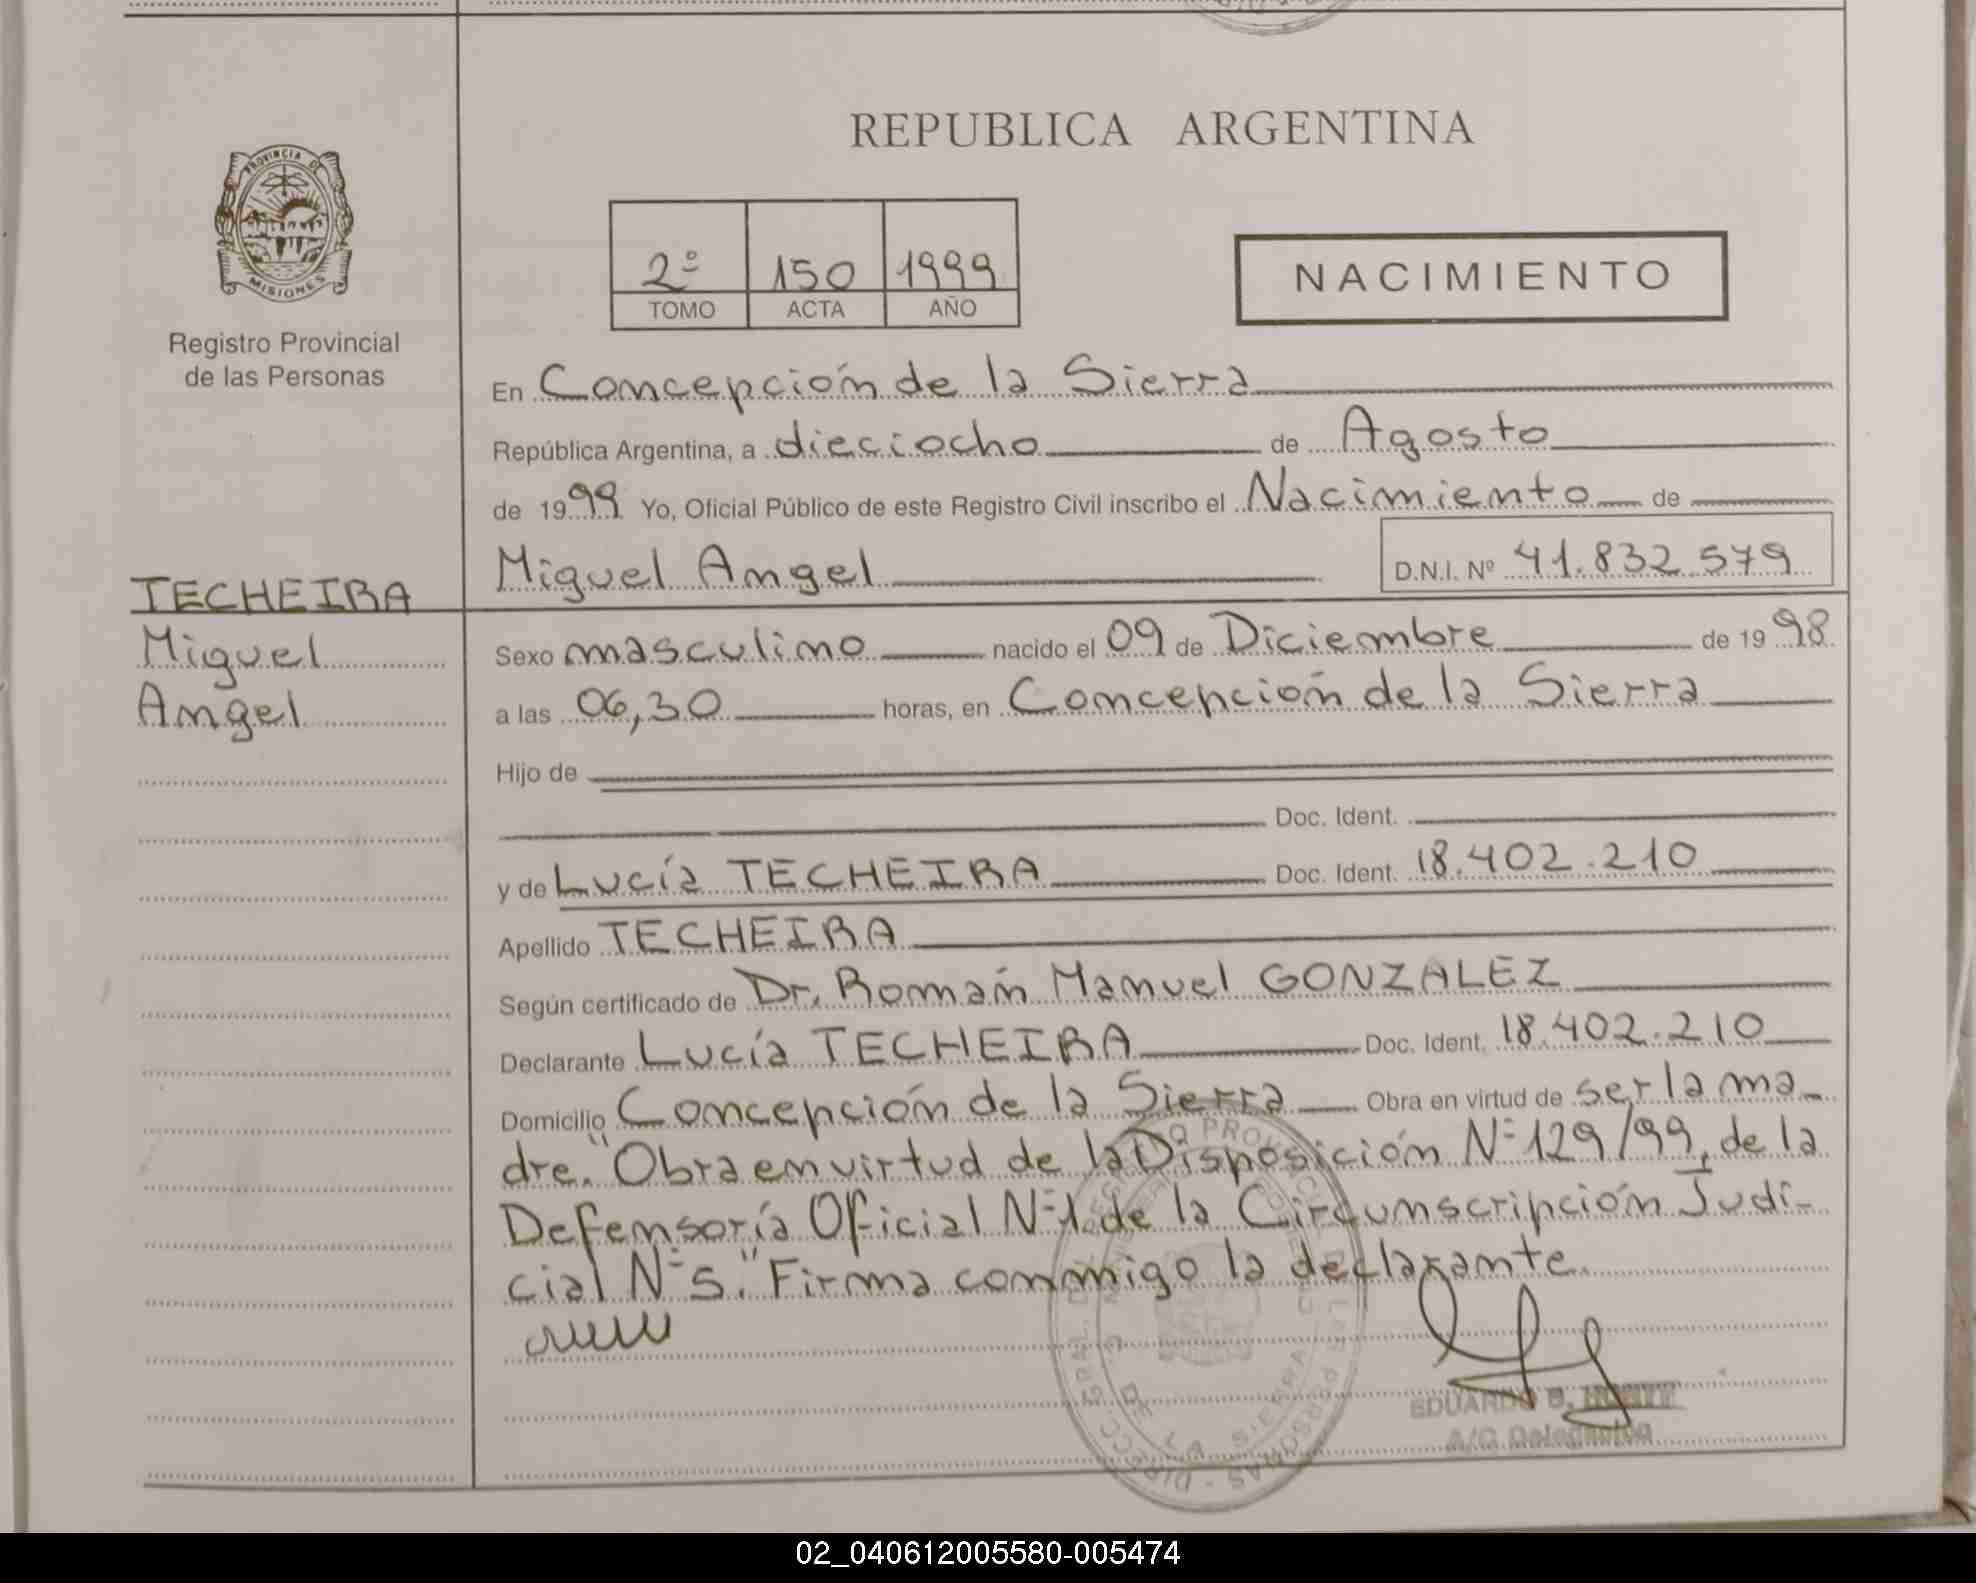 REPUBLICA ARGENTINA
PROVINCIA DE
MISIONES
Registro Provincial
de las Personas
2º 150 1999
TOMO ACTA AÑO
NACIMIENTO
En Concepción de la Sierra
República Argentina, a dieciocho de Agosto
de 1999 Yo, Oficial Público de este Registro Civil inscribo el Nacimiento de
Miguel Angel D.N.I. Nº 41.832.579
TECHEIRA
Miguel
Angel
Sexo masculino nacido el 09 de Diciembre de 1998
a las 06,30 horas, en Concepción de la Sierra
Hijo de
Doc. Ident.
y de Lucía TECHEIRA Doc. Ident. 18.402.210
Apellido TECHEIRA
Según certificado de Dr. Román Manuel GONZALEZ
Declarante Lucía TECHEIRA Doc. Ident. 18.402.210
Domicilio Concepción de la Sierra Obra en virtud de ser la ma-
dre. "Obra en virtud de la Disposición Nº 129/99, de la
Defensoría Oficial Nº 1 de la Circunscripción Judi-
cial Nº 5." Firma conmigo la declarante.
EDUARDO
A/C Delegación
02_040612005580-005474